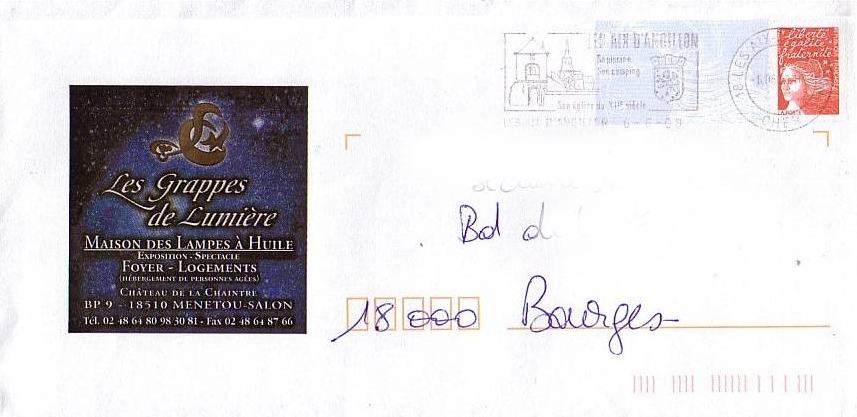 LES AIX D'ANGILLON
Sa piscine
Son camping
Son église du XIIe siècle
LES AIX D'ANGILLON 6-6-03
18 LES AIX
CHER
liberté
égalité
fraternité
LA POSTE
Les Grappes
de Lumière
MAISON DES LAMPES À HUILE
EXPOSITION - SPECTACLE
FOYER - LOGEMENTS
(HÉBERGEMENT DE PERSONNES AGÉES)
CHÂTEAU DE LA CHAINTRE
BP 9 - 18510 MENETOU-SALON
Tél. 02 48 64 80 98 30 81 - Fax 02 48 64 87 66
Bd d
18000 Bourges